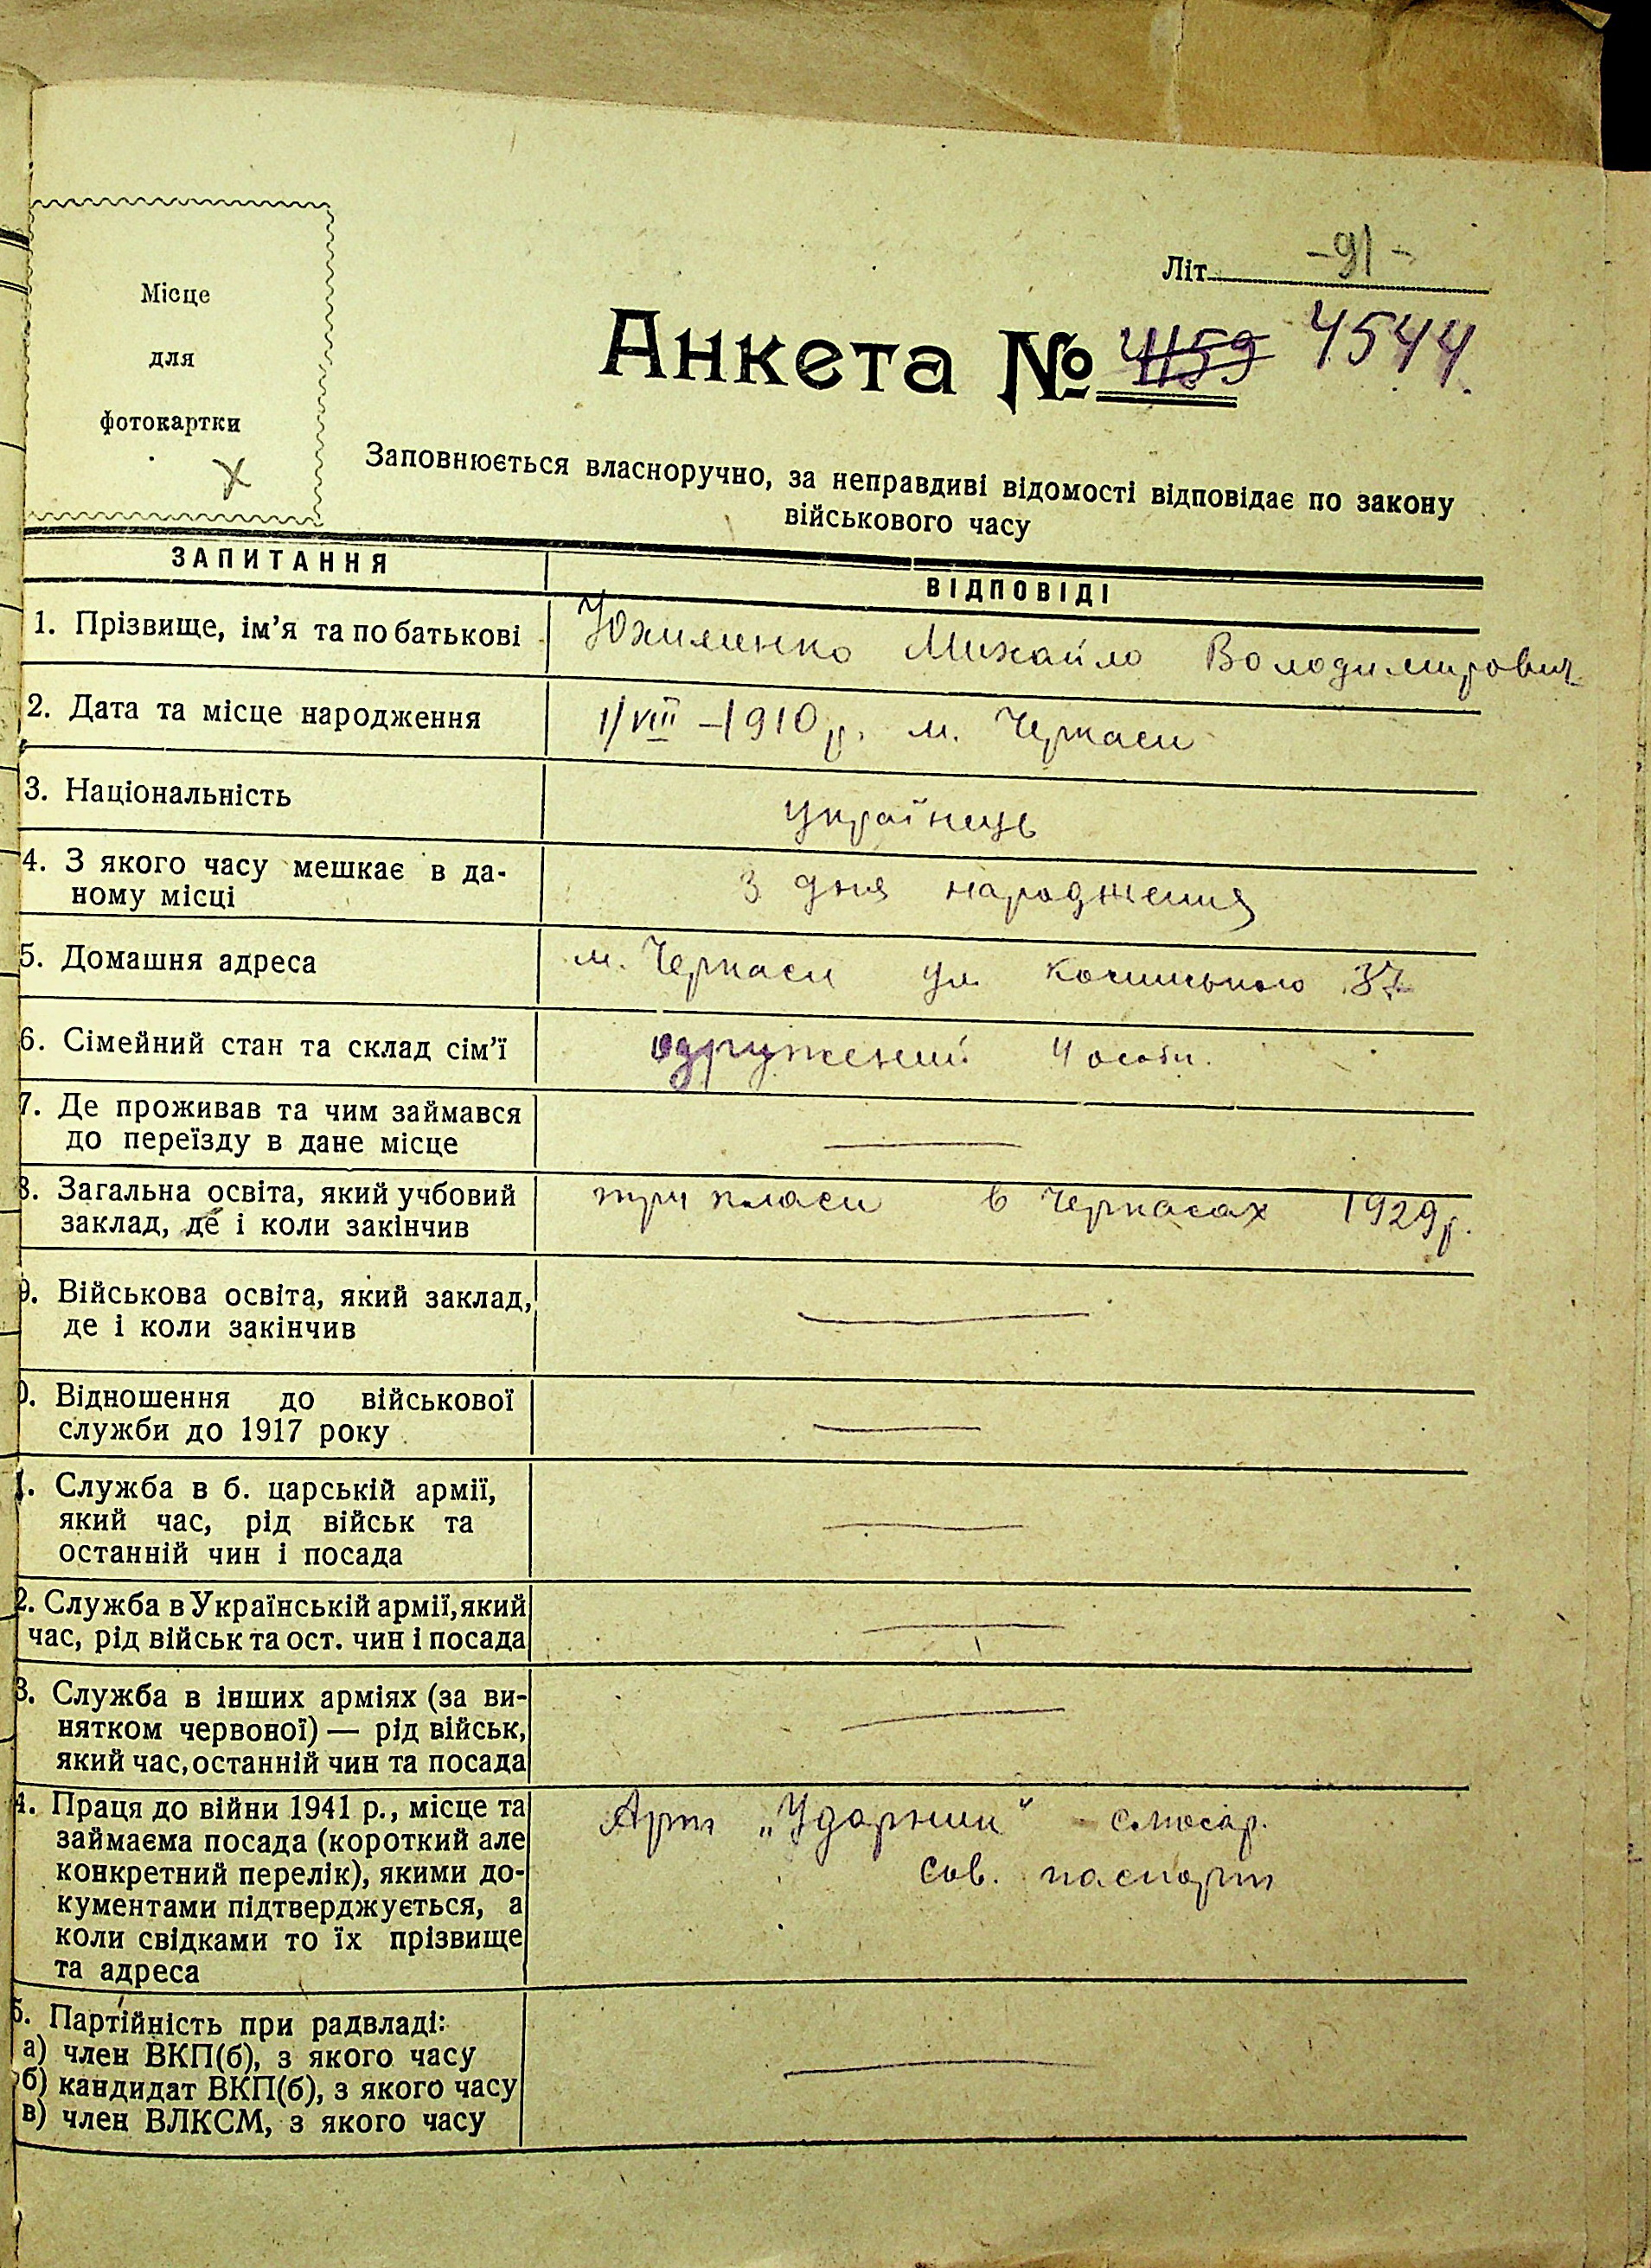 Місце
для
фотокартки
х
Літ. -91-
Анкета № 4159 4544.
Заповнюється власноручно, за неправдиві відомості відповідає по закону
військового часу
ЗАПИТАННЯ
ВІДПОВІДІ
1. Прізвище, ім'я та по батькові
Юхименко Михайло Володимирович
2. Дата та місце народження
1/VIII -1910 р. м. Черкаси
3. Національність
українець
4. З якого часу мешкає в да-
ному місці
З дня народження
5. Домашня адреса
м. Черкаси ул. 37
6. Сімейний стан та склад сім'ї
одружений 4 особи.
7. Де проживав та чим займався
до переїзду в дане місце
8. Загальна освіта, який учбовий
заклад, де і коли закінчив
три класи в Черкасах 1929 р.
9. Військова освіта, який заклад,
де і коли закінчив
0. Відношення до військової
служби до 1917 року
1. Служба в б. царській армії,
який час, рід військ та
останній чин і посада
2. Служба в Українській армії, який
час, рід військ та ост. чин і посада
3. Служба в інших арміях (за ви-
нятком червоної) — рід військ,
який час, останній чин та посада
4. Праця до війни 1941 р., місце та
займаєма посада (короткий але
конкретний перелік), якими до-
кументами підтверджується, а
коли свідками то їх прізвище
та адреса
Арт „Ударник" слюсар.
сов. паспорт
5. Партійність при радвладі:
а) член ВКП(б), з якого часу
б) кандидат ВКП(б), з якого часу
в) член ВЛКСМ, з якого часу